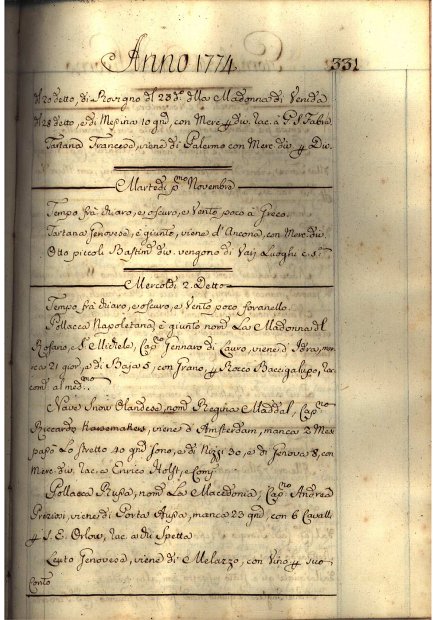 Anno 1774. 331
dl 20 detto, di Rovigno dl 23 d.º dlla Madonna di Venezia
dl 28 detto, e di Messina 10 gnd, con Merc. p div. rac. a
Tartana Francese, viene di Palermo con Merc. div. p Div.
Martedi p.mo Novembre
Tempo frà chiaro, e oscuro, e Vento poco à Greco.
Tartana Genovese, è giunto, viene d'Ancona, con Merc. div.
Otto piccoli Bastim. div. vengono di Varij Luoghi c. s.
Mercoldi 2. Detto
Tempo frà chiaro, e oscuro, e Vento poco foranello.
Pollacca Napoletana è giunto nom. La Madonna dl
Rosario, e S. Michele, Cap.no Gennaro di Lauro, viene d' Idra, man,,
ca 21 gior, e di Baja 5, con Grano, p Rocco Baccigalupo, rac.
com. al med.mo
Nave Snow Olandese, nom. Regina Maddal, Cap.no
Riccardo Hausemakers, viene d' Amsterdam, manca 2 Mes
passo Lo stretto 40 gnd sono, e di Nizza 30, e di Genova 8, con
Merc. div. rac. a Enrico Holst, e Comp.
Pollacca Russa, nom. La Macedonia, Cap.no Andrea
Preziosi, viene di Porta Aussa, manca 23 gnd, con 6 Cavalli
p S. E. Orlow, rac. a di Spetta
Leuto Genovese, viene di Melazzo, con Vino p suo
Conto